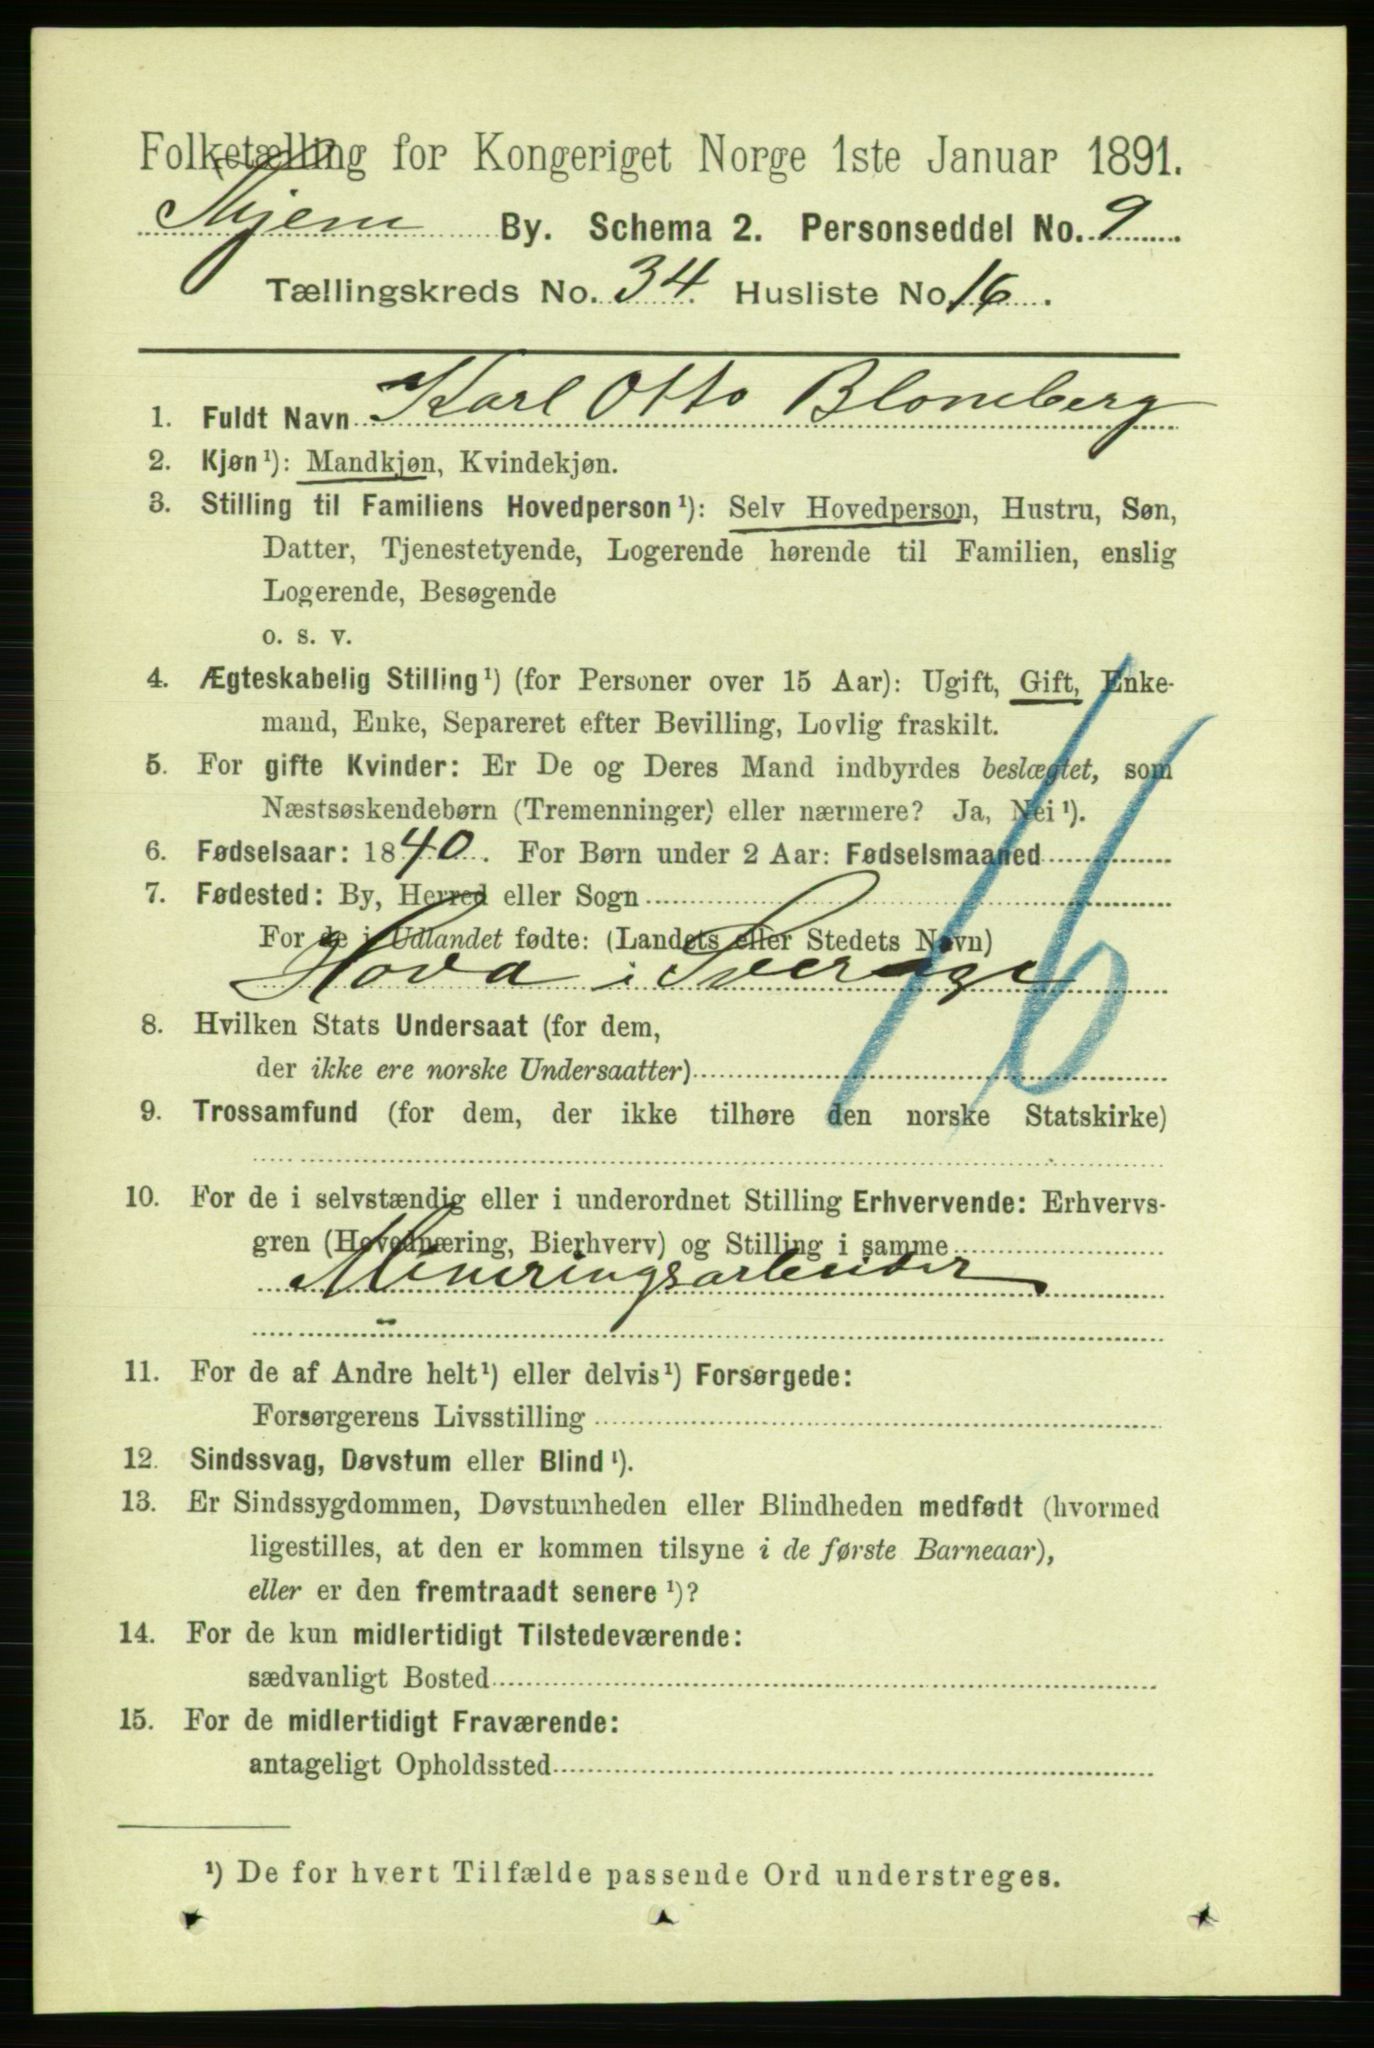 Folketælling for Kongeriget Norge 1ste Januar 1891.
Kjøm By. Schema 2. Personseddel No. 9
Tællingskreds No. 34. Husliste No 16.
1. Fuldt Navn Karl Otto Blomberg
2. Kjøn¹): Mandkjøn, Kvindekjøn.
3. Stilling til Familiens Hovedperson¹): Selv Hovedperson, Hustru, Søn,
Datter, Tjenestetyende, Logerende hørende til Familien, enslig
Logerende, Besøgende
o. s. v.
4. Ægteskabelig Stilling¹) (for Personer over 15 Aar): Ugift, Gift, Enke-
mand, Enke, Separeret efter Bevilling, Lovlig fraskilt.
5. For gifte Kvinder: Er De og Deres Mand indbyrdes beslægtet, som
Næstsøskendebørn (Tremenninger) eller nærmere? Ja, Nei¹).
6. Fødselsaar: 1840. For Børn under 2 Aar: Fødselsmaaned
7. Fødested: By, Herred eller Sogn
For de i Udlandet fødte: (Landets eller Stedets Navn)
Hova i Sverage
16
8. Hvilken Stats Undersaat (for dem,
der ikke ere norske Undersaatter)
9. Trossamfund (for dem, der ikke tilhøre den norske Statskirke)
10. For de i selvstændig eller i underordnet Stilling Erhvervende: Erhvervs-
gren (Hovednæring, Bierhverv) og Stilling i samme
Mineringsarbeider
11. For de af Andre helt¹) eller delvis¹) Forsørgede:
Forsørgerens Livsstilling
12. Sindssvag, Døvstum eller Blind¹).
13. Er Sindssygdommen, Døvstumheden eller Blindheden medfødt (hvormed
ligestilles, at den er kommen tilsyne i de første Barneaar),
eller er den fremtraadt senere¹)?
14. For de kun midlertidigt Tilstedeværende:
sædvanligt Bosted
15. For de midlertidigt Fraværende:
antageligt Opholdssted
¹) De for hvert Tilfælde passende Ord understreges.